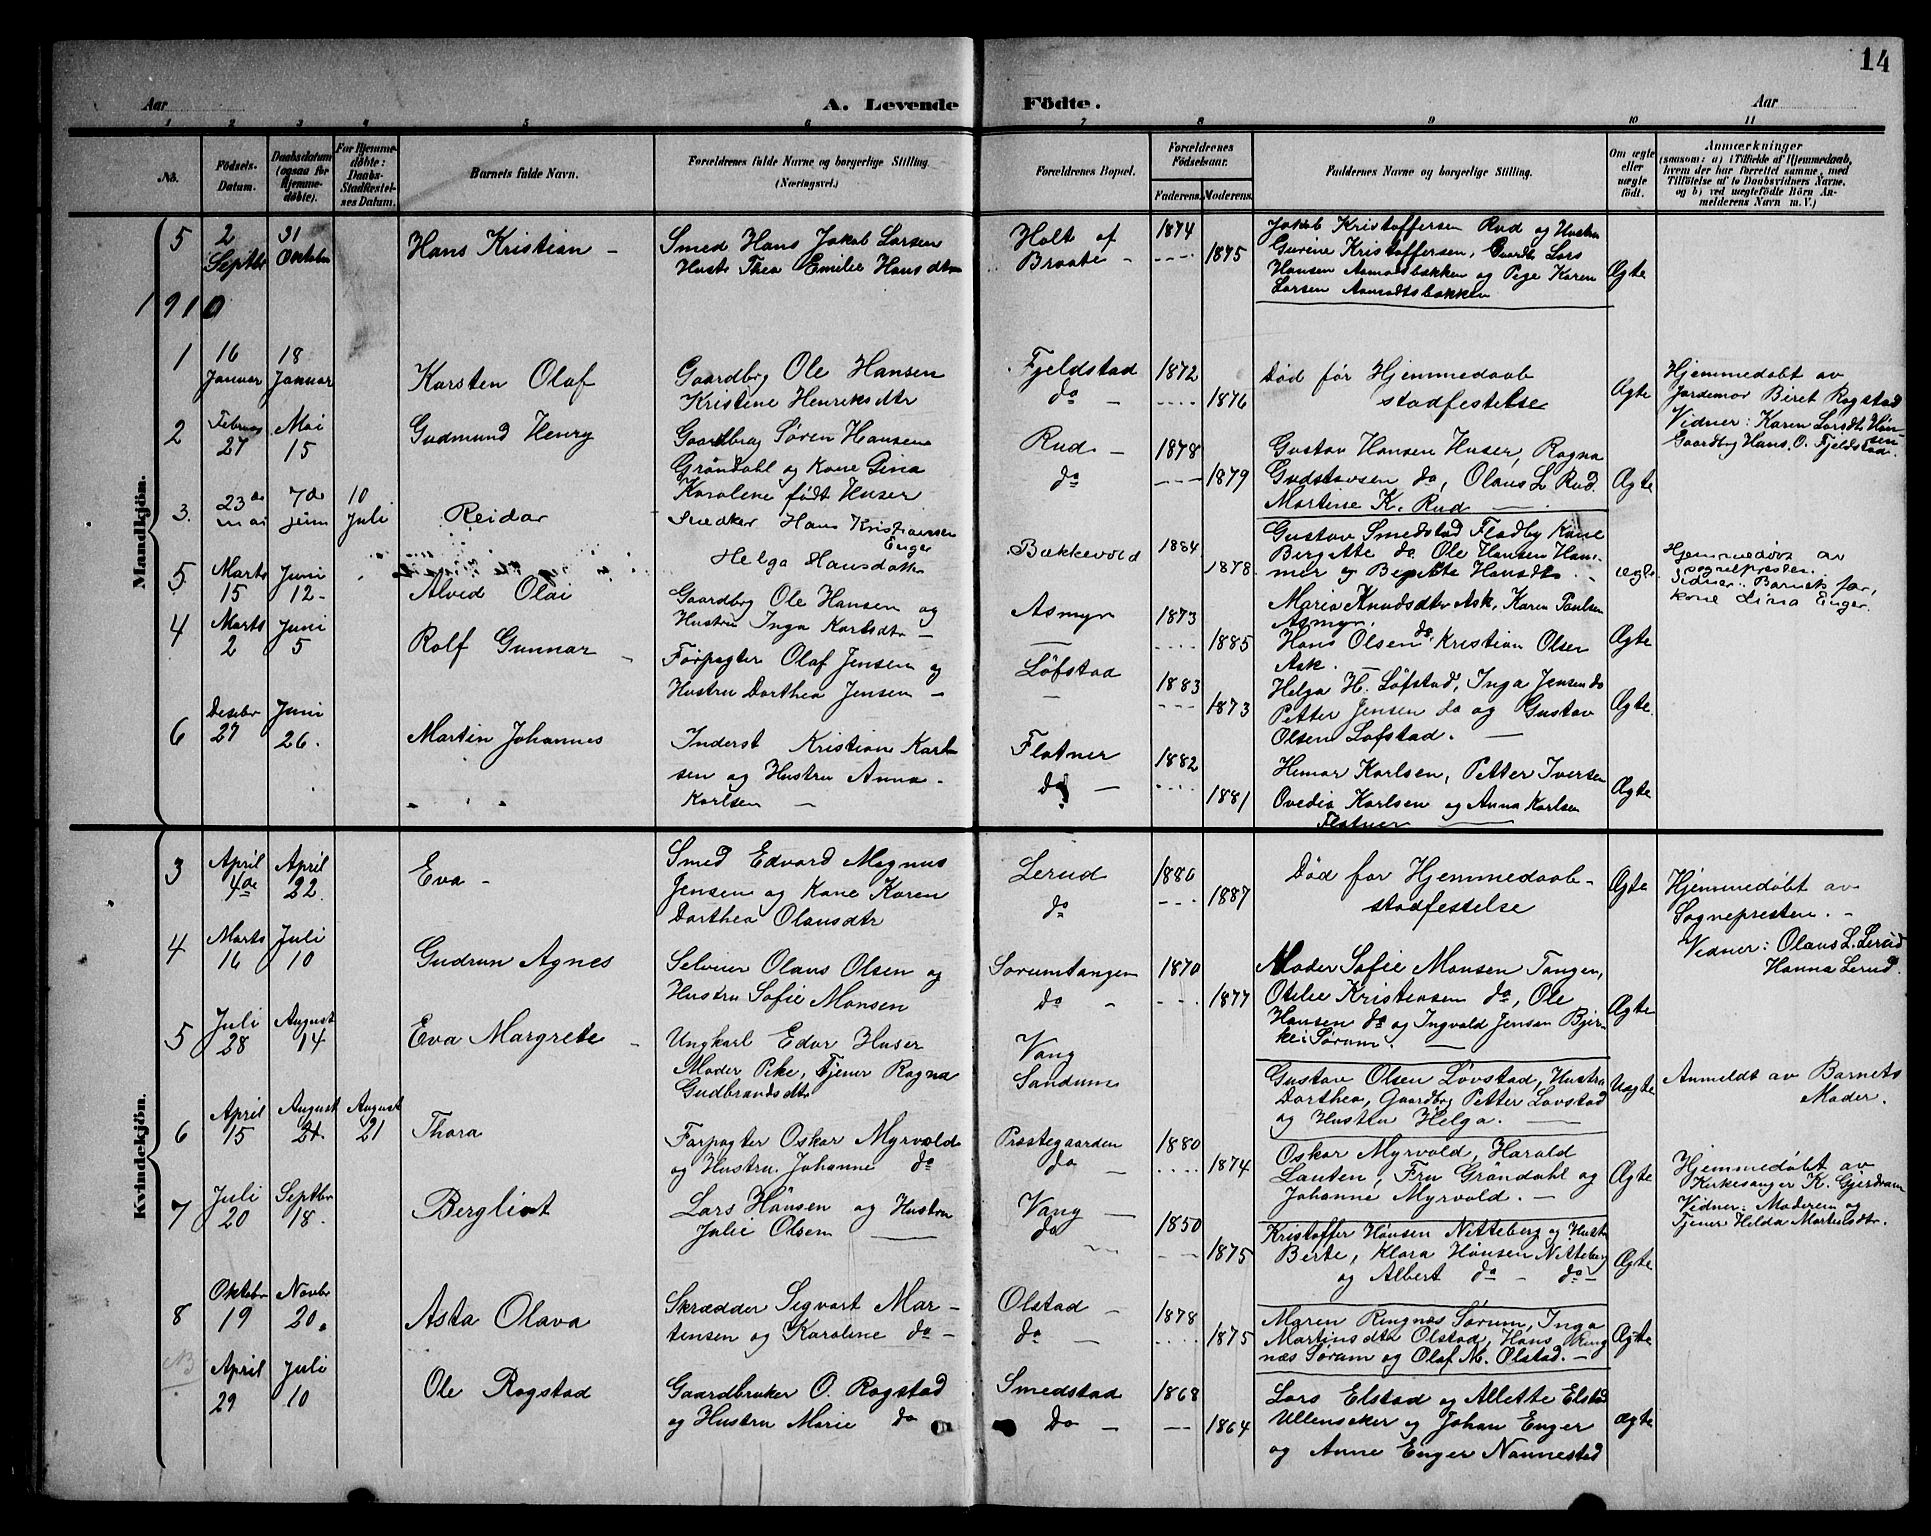 14
Aar
A. Levende Födte.
Aar
1 2 3 4 5 6 7 8 9 10 11
No.
Födsels-Datum.
Daabsdatum (ogsaa for Hjemmedöbte).
For Hjemmedöbte: Daabs-Stadfæstelses Datum.
Barnets fulde Navn.
Forældrenes fulde Navne og borgerlige Stilling. (Næringsvei.)
Forældrenes Bopæl.
Forældrenes Födselsaar.
Faderens. Moderens.
Faddernes Navne og borgerlige Stilling.
Om ægte eller uægte födt.
Anmærkninger
(saasom: a) i Tilfælde af Hjemmedaab,
hvem der har forrettet samme, med
Tilföielse af to Daabsvidners Navne,
og b) ved uegtefödte Börn An-
melderens Navn m. V.)
5
2 Septbr
31 Oktober
Hans Kristian –
Smed Hans Jakob Larsen
Hustr Thea Emilie Hansdtr
Holt af
Braate –
1874
1875
Jakob Kristoffersen Rud og Hustru
Gurine Kristoffersen, Gaardbr Lars
Hansen Aamodtsbakken og Pige Karen
Larsen Aamodtsbakken
Ægte
1910
Mandkjön.
1
16 Januar
18 Januar
Karsten Olaf
Gaardbrg Ole Hansen
Kristine Henriksdtr
Fjeldstad
do –
1872
1876
Død før Hjemmedaab
stadfestelse
Ægte
Hjemmedøbt av
Jordemor Beret Rogstad
Vidner: Karen Larsdtr Han-
sen
Gaardbrg Hans O. Fjeldstad.
2
Februar 27
Mai 15
Gudmund Henry
Gaardbrug Søren Hansen
Grøndahl og Kone Gina
Karolene født Huser
Rud –
do
1878
1879
Gustav Hansen Huser, Ragna
Gudstavsen do, Olaus L Rud.
Martine K. Rud –
Ægte
3.
23de mai
7de juni
10 Juli
Reidar
Snedker Hans Kristiansen
Enger
Helga Hansdatter
Bækkevold
1884
1878.
Gustav Smedstad Fladby Kone
Bergitte do Ole Hansen Ham-
mer og Bergitte Hansdtr.
ægte
Hjemmedøbt av
sognepresten.
Vidner: Barnets far,
kone Lina Enger.
5
Marts 15
Juni 12 –
Alvid Olai
Gaardbrg Ole Hansen og
Hustru Inga Karlsdtr –
Asmyr
1873
1885
Maria Knudsdtr Ask, Karen Paulsen
Asmyr.
Hans Olsen do. Kristian Olsen
Ask.
Ægte
4
Marts 2
Juni 5
Rolf Gunnar –
Forpagter Olaf Jensen og
Hustru Dorthea Jensen –
Løfstad
1883
1873
Helga H. Løfstad, Inga Jensen do
Petter Jensen do og Gustav
Olsen Løfstad. –
Ægte
6
Desebr 27
Juni 26.
Martin Johannes
Inderst Kristian Karl-
sen og Hustru Anna
Karlsen –
Flatner
do –
1882
1881
Hemar Karlsen, Petter Iversen
Ovedia Karlsen og Anna Karlsen
Flatner –
Ægte
Kvindekjön.
3
April 4de
April 22.
Eva –
Smed Edvard Magnus
Jensen og Kone Karen
Dorthea Olausdtr
Lerud
do
1880
1887
Død for Hjemmedaab-
stadfestelse
Ægte
Hjemmedøbt av
Sognepresten. –
Vidner: Olaus L. Lerud
Hanna Lerud.
4
Marts 16
Juli 10
Gudrun Agnes
Selveier Olaus Olsen og
Hustru Sofie Monsen
Sørumtangen
do –
1870
1877
Moder Sofie Monsen Tangen,
Otelie Kristiansen do, Ole
Hansen do og Ingvald Jensen Bjer-
ke i Sørum. –
Ægte
5
Juli 28
August 14
Eva Margrete –
Ungkarl Edvr Huser
Moder Pike, Tjener Ragna
Gudbrandsdtr
Vang
Sandum
Gustav Olsen Løvstad, Hustru
Dorthea, Gaardbrg Petter Løvstad
og Hustru Helga. –
Uægte
Anmeldt av Barnets
Moder.
6
April 15
August 21
August 21
Thora
Forpagter Oskar Myrvold
og Hustru. Johanne do
Prestegaarden
do –
1880
1874
Oskar Myrvold, Harald
Lauten, Fru Grøndahl og
Johanne Myrvold. –
Ægte
Hjemmedøbt av
Kirkesanger K. Gjerdrum
Vidner: Moderen og
Tjener Helda Martinsdtr.
7
Juli 20
Septbr 18.
Bergliot
Lars Hansen og Hustru
Julie Olsen
Vang –
do
1850
1875
Kristoffer Hansen Netteberg og Hustr
Berte, Klara Hansen Netteberg
og Albert do – do –
Ægte
8
Oktober 19
Novbr 20.
Asta Olava
Skrædder Segvart Mar-
tensen og Karoline do –
Olstad –
do –
1878
1875
Maren Ringnæs Sørum, Inga
Martinsdtr Olstad, Hans Ring
næs Sørum og Olaf M. Olstad. –
Ægte
NB
April 29
Juli 10
Ole Rogstad
Gaardbruker O. Rogstad
og Hustru Marie do
Smedstad
Do –
1868
1864
Lars Elstad og Allette Elstad
Ullensaker og Johan Enger
og Anne Enger Nannestad
ægte